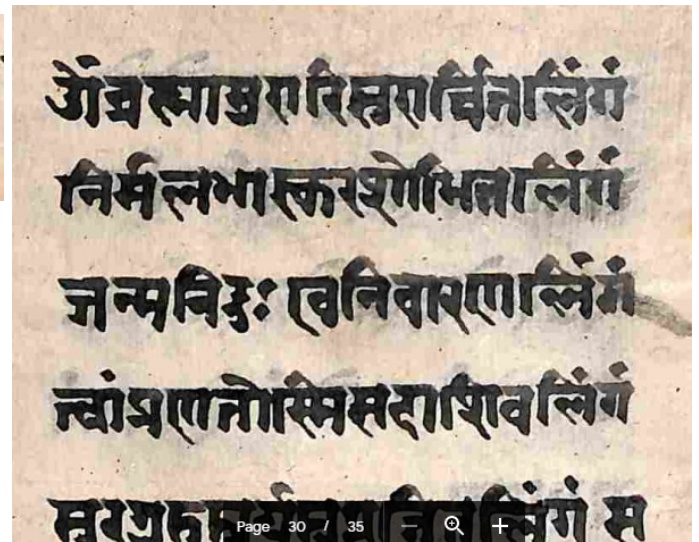 ओंब्रह्मामुरारिसुरार्चितलिंगं
निर्मलभास्करशोभितलिंगं
जन्मविदुः खेनिवारणलिंगं
त्वांप्रणतोस्मिसदाशिवलिंगं
लिंगं स
Page 30 / 35